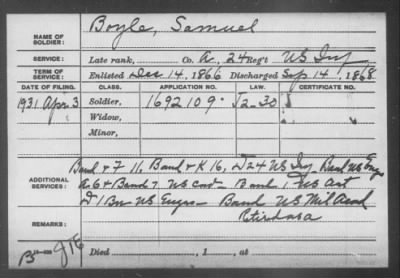 NAME OF SOLDIER: Boyle, Samuel
SERVICE: Late rank, Co. A, 24 Reg't US Inf
TERM OF SERVICE: Enlisted Dec 14, 1866 Discharged Sep 14, 1868
DATE OF FILING. CLASS. APPLICATION NO. LAW. CERTIFICATE NO.
1931 Apr. 3 Soldier, 1692109
Widow,
Minor,
Band & F 11, Band & K 16, D 24 US Inf - Band US Engs
ADDITIONAL SERVICES: A 6 & Band 7 US Cav - Band 1 US Art
D 1 Bn US Engrs - Band US Mil Acad
REMARKS: Retired
Died , 1 , at